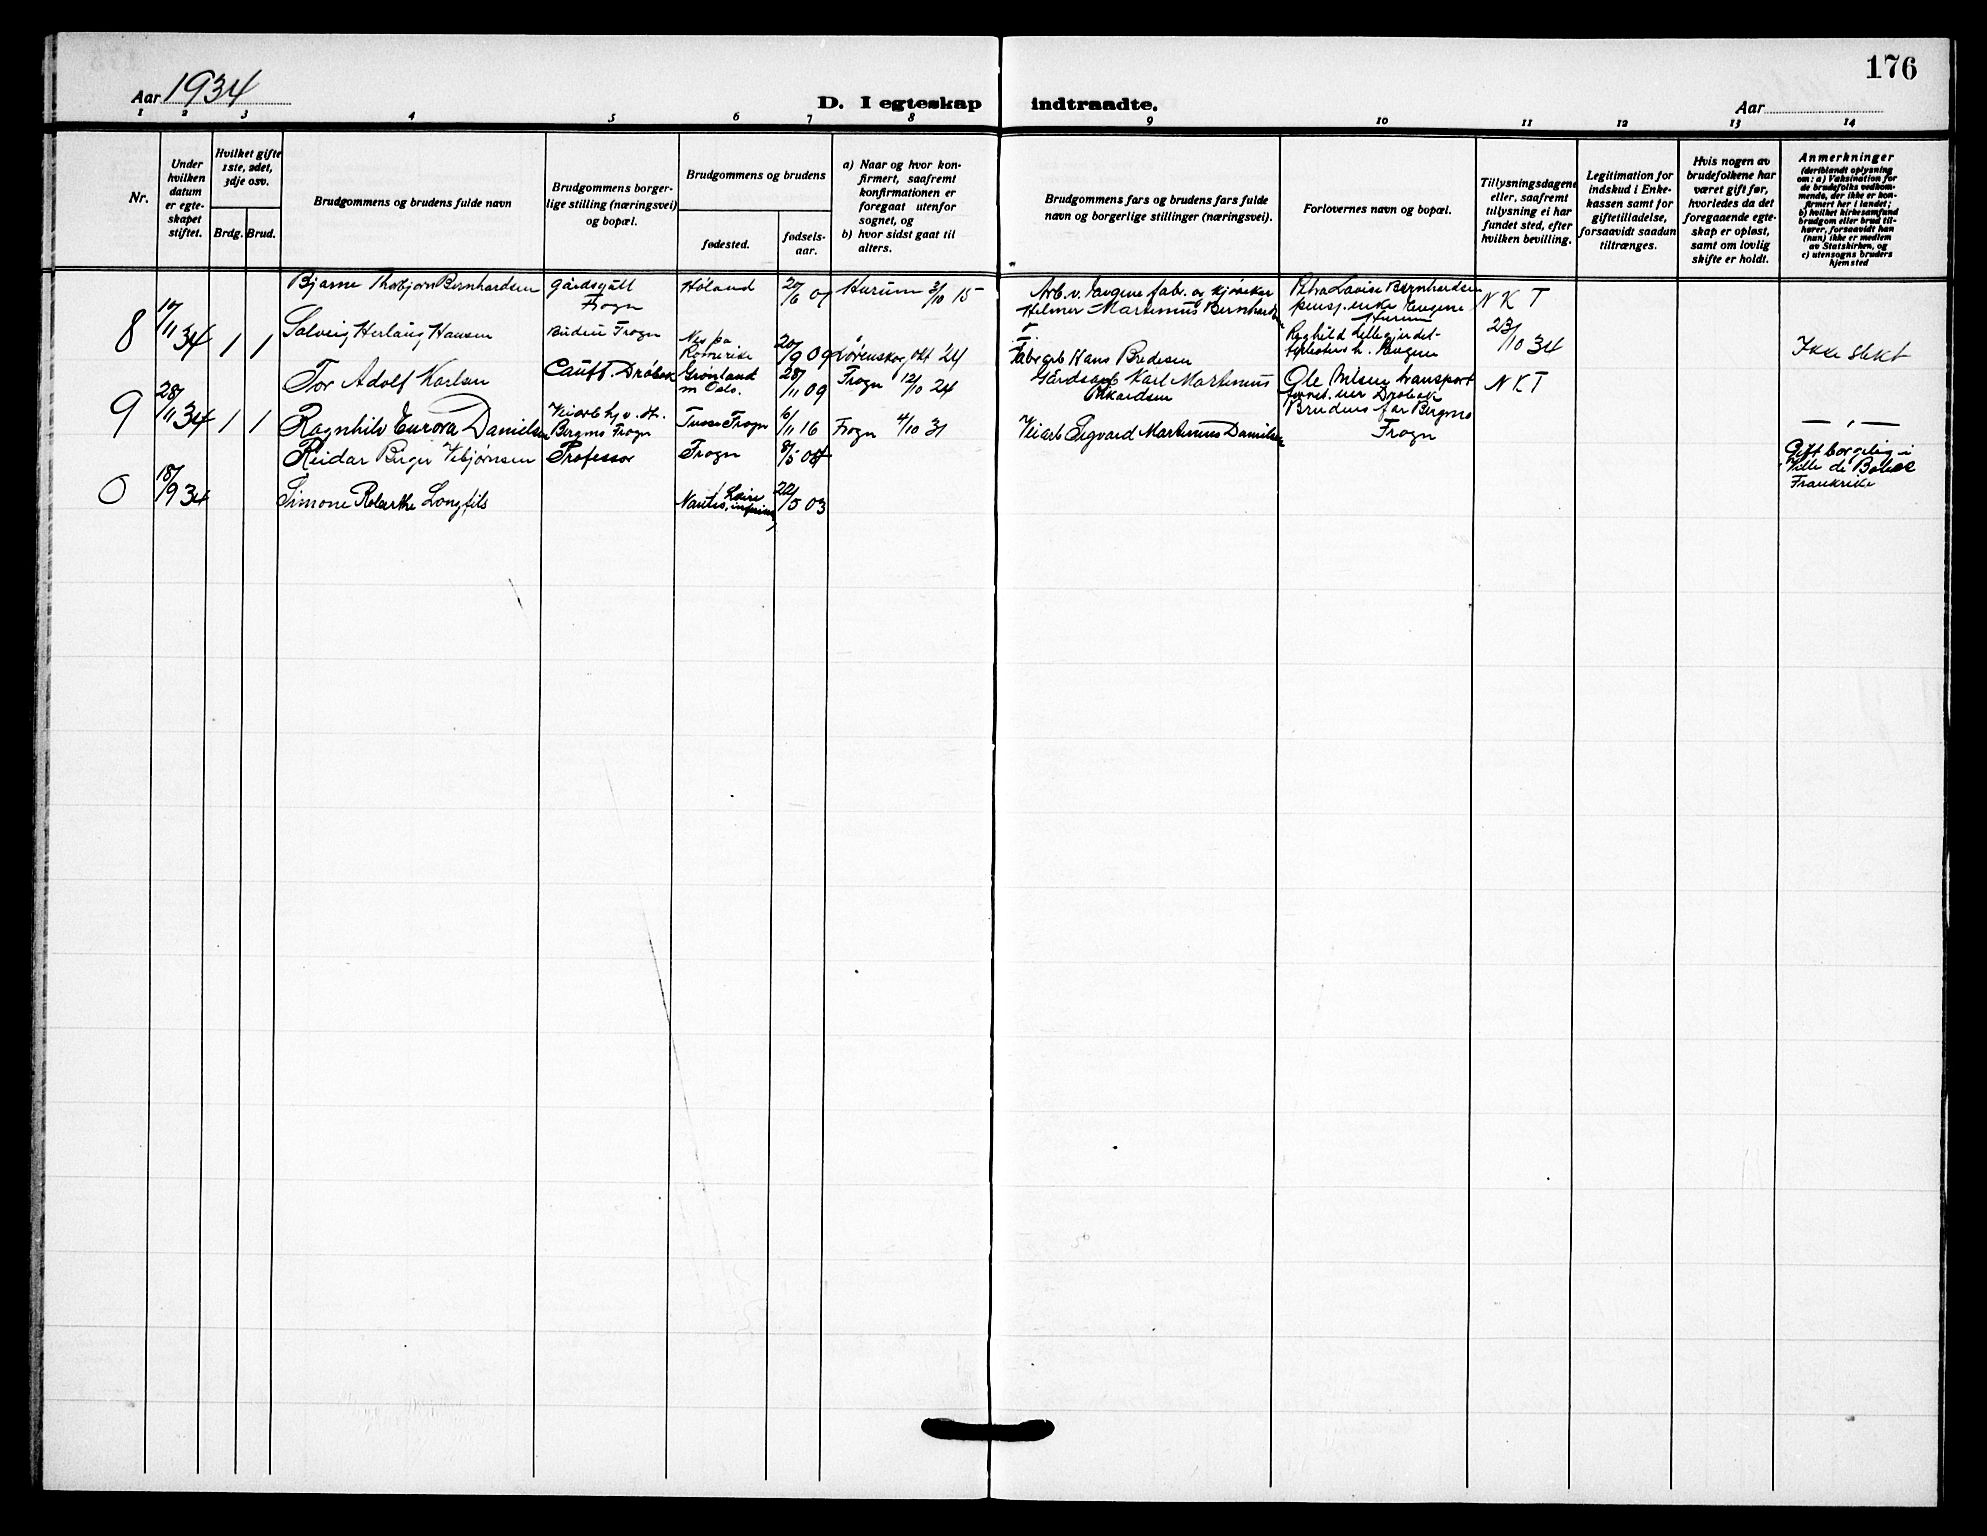 176
Aar 1934
D. I egteskap indtraadte.
Aar
1 2 3 4 5 6 7 8 9 10 11 12 13 14
Nr.
Under
hvilken
datum
er egte-
skapet
stiftet.
Hvilket gifte
1ste, 2det,
3dje osv.
Brdg. Brud.
Brudgommens og brudens fulde navn
Brudgommens borger-
lige stilling (næringsvei)
og bopæl.
Brudgommens og brudens
fødested.
fødsels-
aar.
a) Naar og hvor kon-
firmert, saafremt
konfirmationen er
foregaat utenfor
sognet, og
b) hvor sidst gaat til
alters.
Brudgommens fars og brudens fars fulde
navn og borgerlige stillinger (næringsvei).
Forlovernes navn og bopæl.
Tillysningsdagene
eller, saafremt
tillysning ei har
fundet sted, efter
hvilken bevilling.
Legitimation for
indskud i Enke-
kassen samt for
giftetilladelse,
forsaavidt saadan
tiltrænges.
Hvis nogen av
brudefolkene har
været gift før,
hvorledes da det
foregaaende egte-
skap er opløst,
samt om lovlig
skifte er holdt.
Anmerkninger
(deriblandt oplysning
om: a) Vaksination for
de brudefolks vedkom-
mende, der ikke er kon-
firmert her i landet;
b) hvilket kirkesamfund
brudgom eller brud til-
hører, forsaavidt han
(hun) ikke er medlem
av Statskirken, og
c) utensogns bruders
hjemsted
8
17/11 34
1 1
Bjarne Thorbjørn Bernhardsen
gårdsgutt
Frogn
Høland
20/6 07
Hurum 3/10 15
Arb. v. Engene fab. og kjørekar
Hilmer Martinius Bernhardsen
Petra Lovise Bernhardsen
pensj. enke Engene
Hurum
N K T
Solveig Herlaug Hansen
Frogn
Nes på
Romerike
20/9 09
Lørenskog okt 24
Fabr arb Hans Bredesen
Engene
23/10 34
Ikke slekt
9
28/11 34
1 1
Tor Adolf Karlsen
Drøbak
Grønland
m Oslo.
28/11 09
Frogn 12/10 24
Gårdsarb Karl Martinius
Rikardsen
Ole Nilsen transport
Drøbak
N K T
Ragnhild Eurora Danielsen
Bergmo Frogn
Tusse Frogn
6/11 16
Frogn 4/10 31
Veiarb Sigvard Martinius Danielsen
Brudens far Bergmo
Frogn
— „ —
0
18/9 34
Reidar Birger Vebjørnsen
Professor
Frogn
8/5 08
Gift borgelig i
Ville de
Frankrike
Simone Roberthe Longfils
Nantes, Loire
inferieure
22/5 03